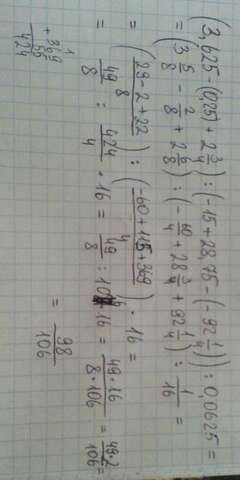 (3,625 - (025) + 2 3/4) : (-15 + 28,75 - (-92 1/4)) : 0,0625 =
= (3 5/8 - 2/8 + 2 6/8) : (-60/4 + 28 3/4 + 92 1/4) : 1/16 =
= ((29-2+22)/8) : ((-60+115+369)/4) · 16 =
= 49/8 : 424/4 · 16 = 49/8 : 106 · 16 = (49·16)/(8·106) = (49·2)/106 =
= 98/106
+ 369
55
424